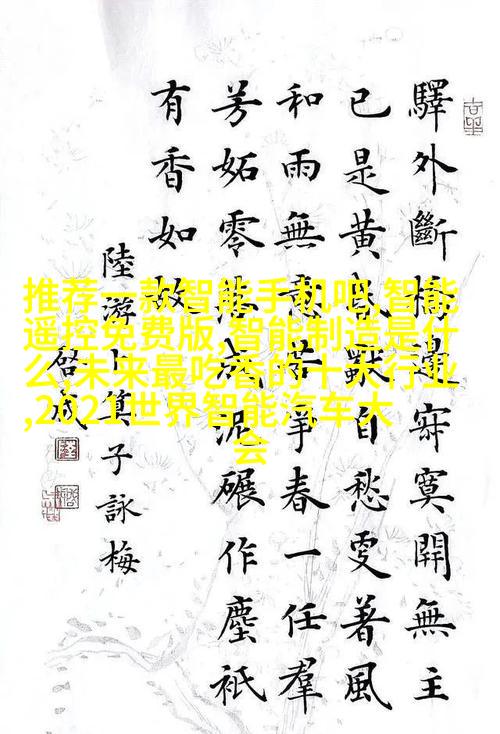 驛外斷橋邊寂寞開無主
已是黃昏獨自愁更著風
和雨無意苦爭春一任羣
芳妬零落成泥碾作塵祇
有香如故
陸游卜算子詠梅
啓成
推荐一款智能手机吧,智能
遥控免费版,智能制造是什
么,未来最吃香的十大行业
,2021世界智能汽车大
会